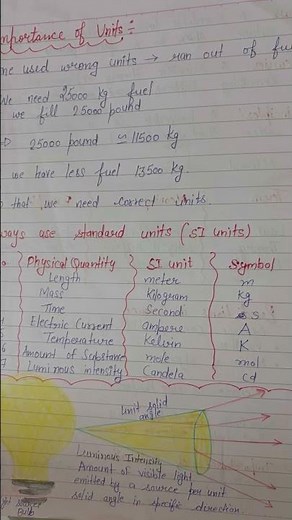 Importance of Units :-
me used wrong units → ran out of fu
We need 25000 kg fuel
we fill 25000 pound
⇒ 25000 pound ≃ 11500 kg
we have less fuel 13500 kg.
that we need correct units.
ways use standard units (SI units)
Physical Quantity SI unit Symbol
Length meter m
Mass Kilogram Kg
Time Second s
Electric Current ampere A
Temperature Kelvin K
6 Amount of Substance mole mol
7 Luminous intensity Candela cd
Unit solid
angle
Luminous Intensity
Amount of visible light
emitted by a source per unit
solid angle in specific direction.
Bulb